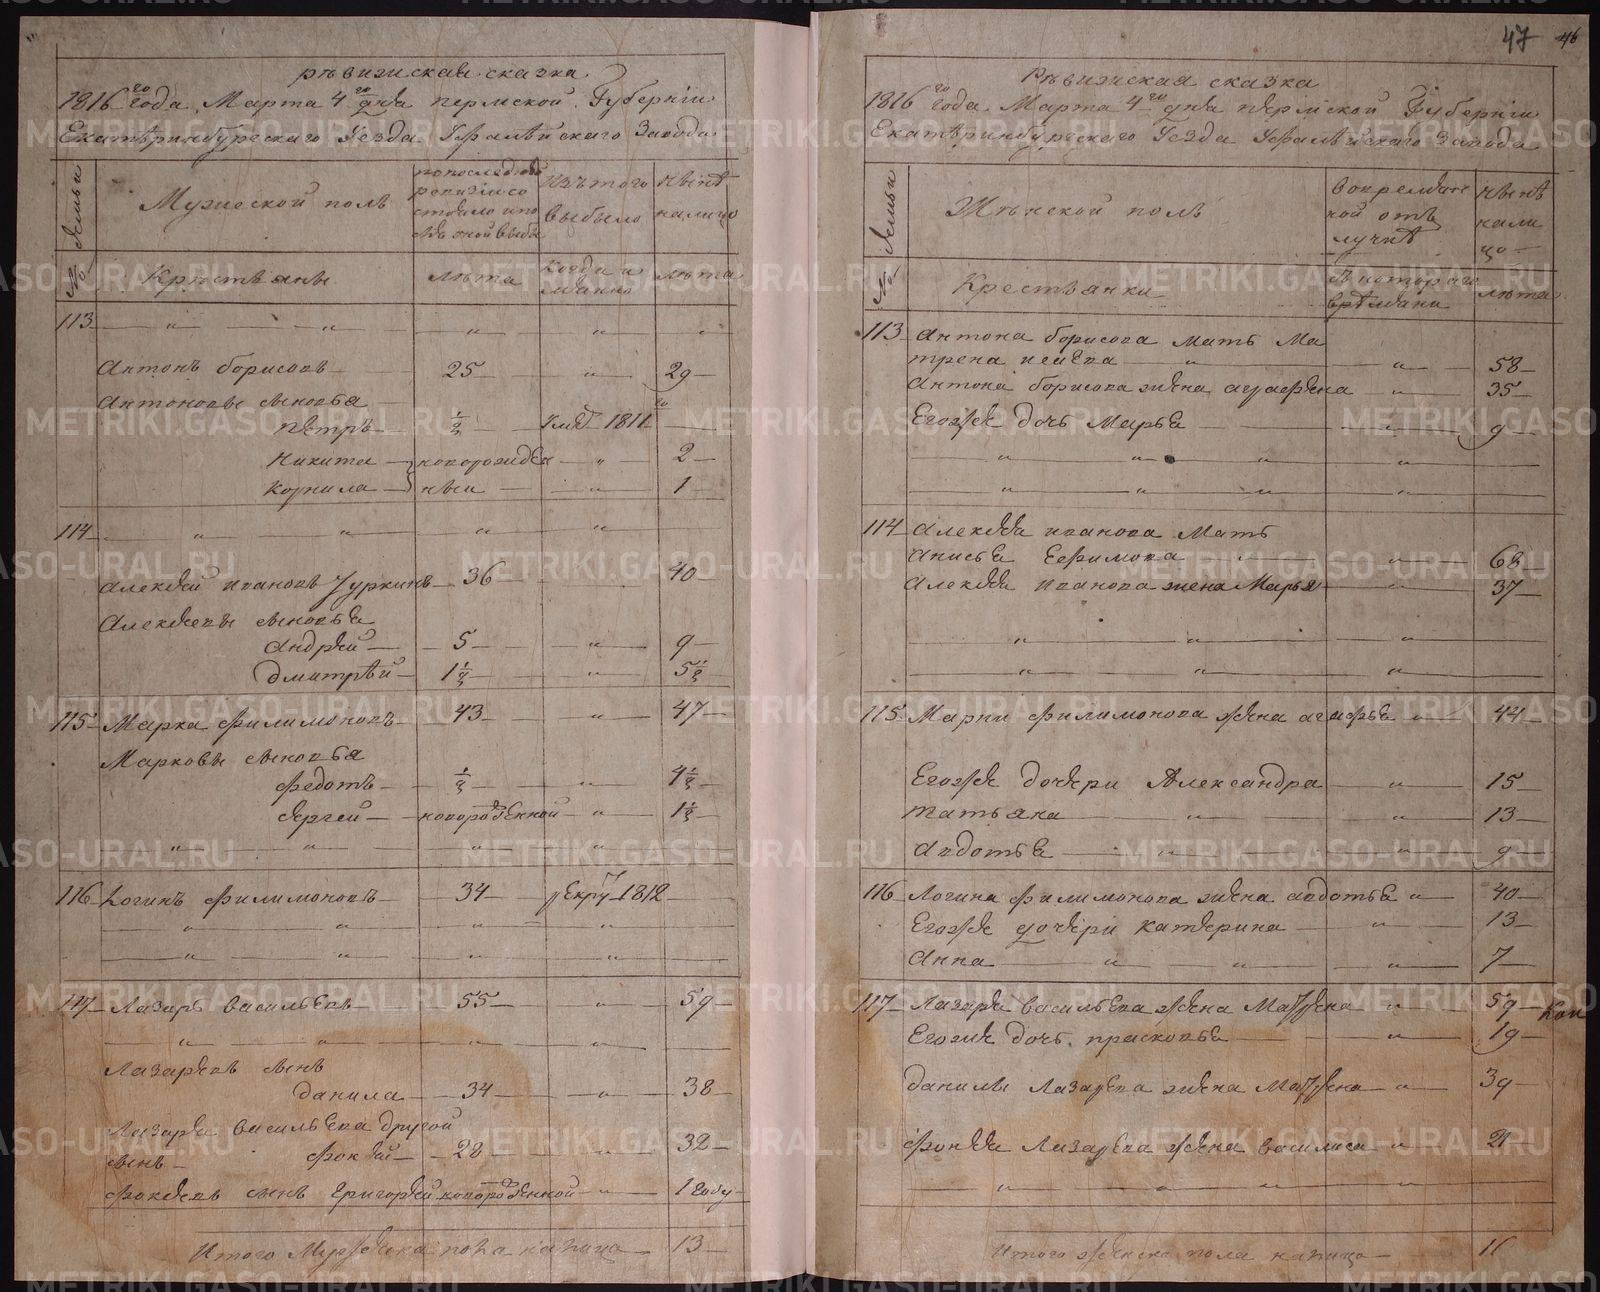 рѣвизиская сказка
1816го года Марта 4го дня пермской Губерніи
Екатѣринбургскаго Уезда Уфалѣйскаго Завода
№ Семьи
Мужеской полъ
по последней ревизіи со стояло и по слѣ оной выбы
Изъ того выбыло
Нынѣ налицо
Крестьяне
лѣта
когда и
лѣта
113
Антонъ борисовъ 25 29
Антоновы сыновья
пѣтръ ½ 1811го
Никита новорожде 2
Корнила ные 1
114
Алексѣй ивановъ Чуркинъ 36 40
Алексѣевы сыновья
Андрѣй 5 9
Дмитрѣй 1½ 5½
115 Марка филимоновъ 43 47
Марковы сыновья
федотъ ½ 4½
Сергей новорожденной 1½
116 Логинъ филимоновъ 34 рекру 1812
117 Лазарь васильевъ 55 59
Лазаревъ сынъ
данила 34 38
Лазаря васильева другой
сынъ фокѣй 28 32
фокѣевъ сынъ григорѣй новорожденной 1 году
Итого Мужеска пола налицо 13
47 46
Рѣвизиская сказка
1816го года Марта 4го дня пермской Губерніи
Екатѣринбургскаго Уезда Уфалѣйскаго Завода
№ Семьи
Женской полъ
во времянной отъ лучкѣ
Нынѣ нали цо
Крестьянки
С котораго врѣмяни
лѣта
113 Антона борисова Мать Ма
трена 58
Антона борисова жена агрофена 35
Егожъ дочь Марья 9
114 Алексѣя иванова Мать
Анисья Ефимова 68
Алексѣя иванова жена Марья 37
115 Марки филимонова жена агафья 44
Егожъ дочери Александра 15
татьяна 13
Авдотья 9
116 Логина филимонова жена авдотья 40
Егожъ дочери катерина 13
Анна 7
117 Лазаря васильева жена Матрена 59
Егожъ дочь прасковья 19
данилы Лазарева жена Матрена 39
фокѣя Лазарева жена василиса 21
Итого женска пола налицо 16
METRIKI.GASO-URAL.RU